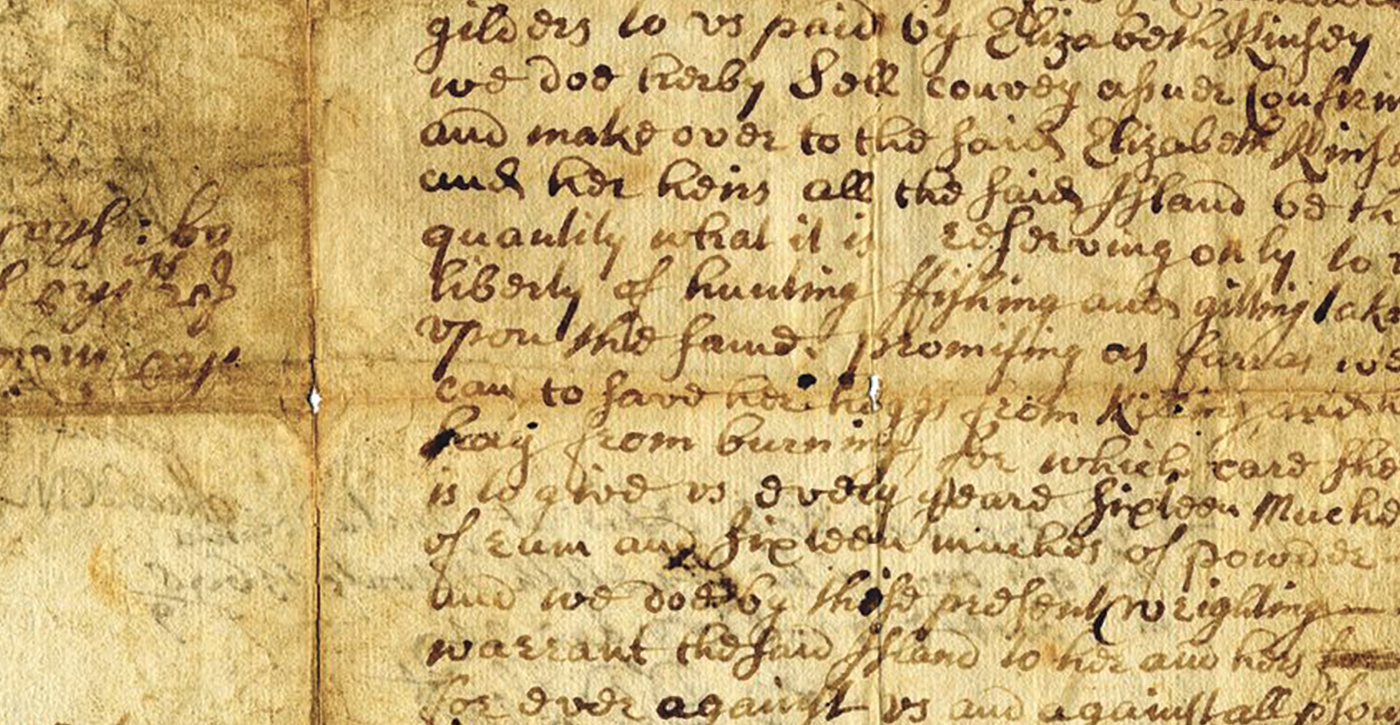 gilders to vs paid by Elizabeth Kinsey
we doe herby Sell convey assuer Confirm
and make over to the said Elizabeth Kinse
and her heirs all the said Island be the
quantity what it is reserving only to
liberty of hunting ffishing and gitting
vpon the same. promising as furr as we
can to save her hoggs from Killing and
hay from burning, for which care she
is to give vs every yeare sixteen Muches
of rum and sixteen muches of powder
and we doe by these present wrighting
warrant the said Island to her and hers
for ever against vs and against all